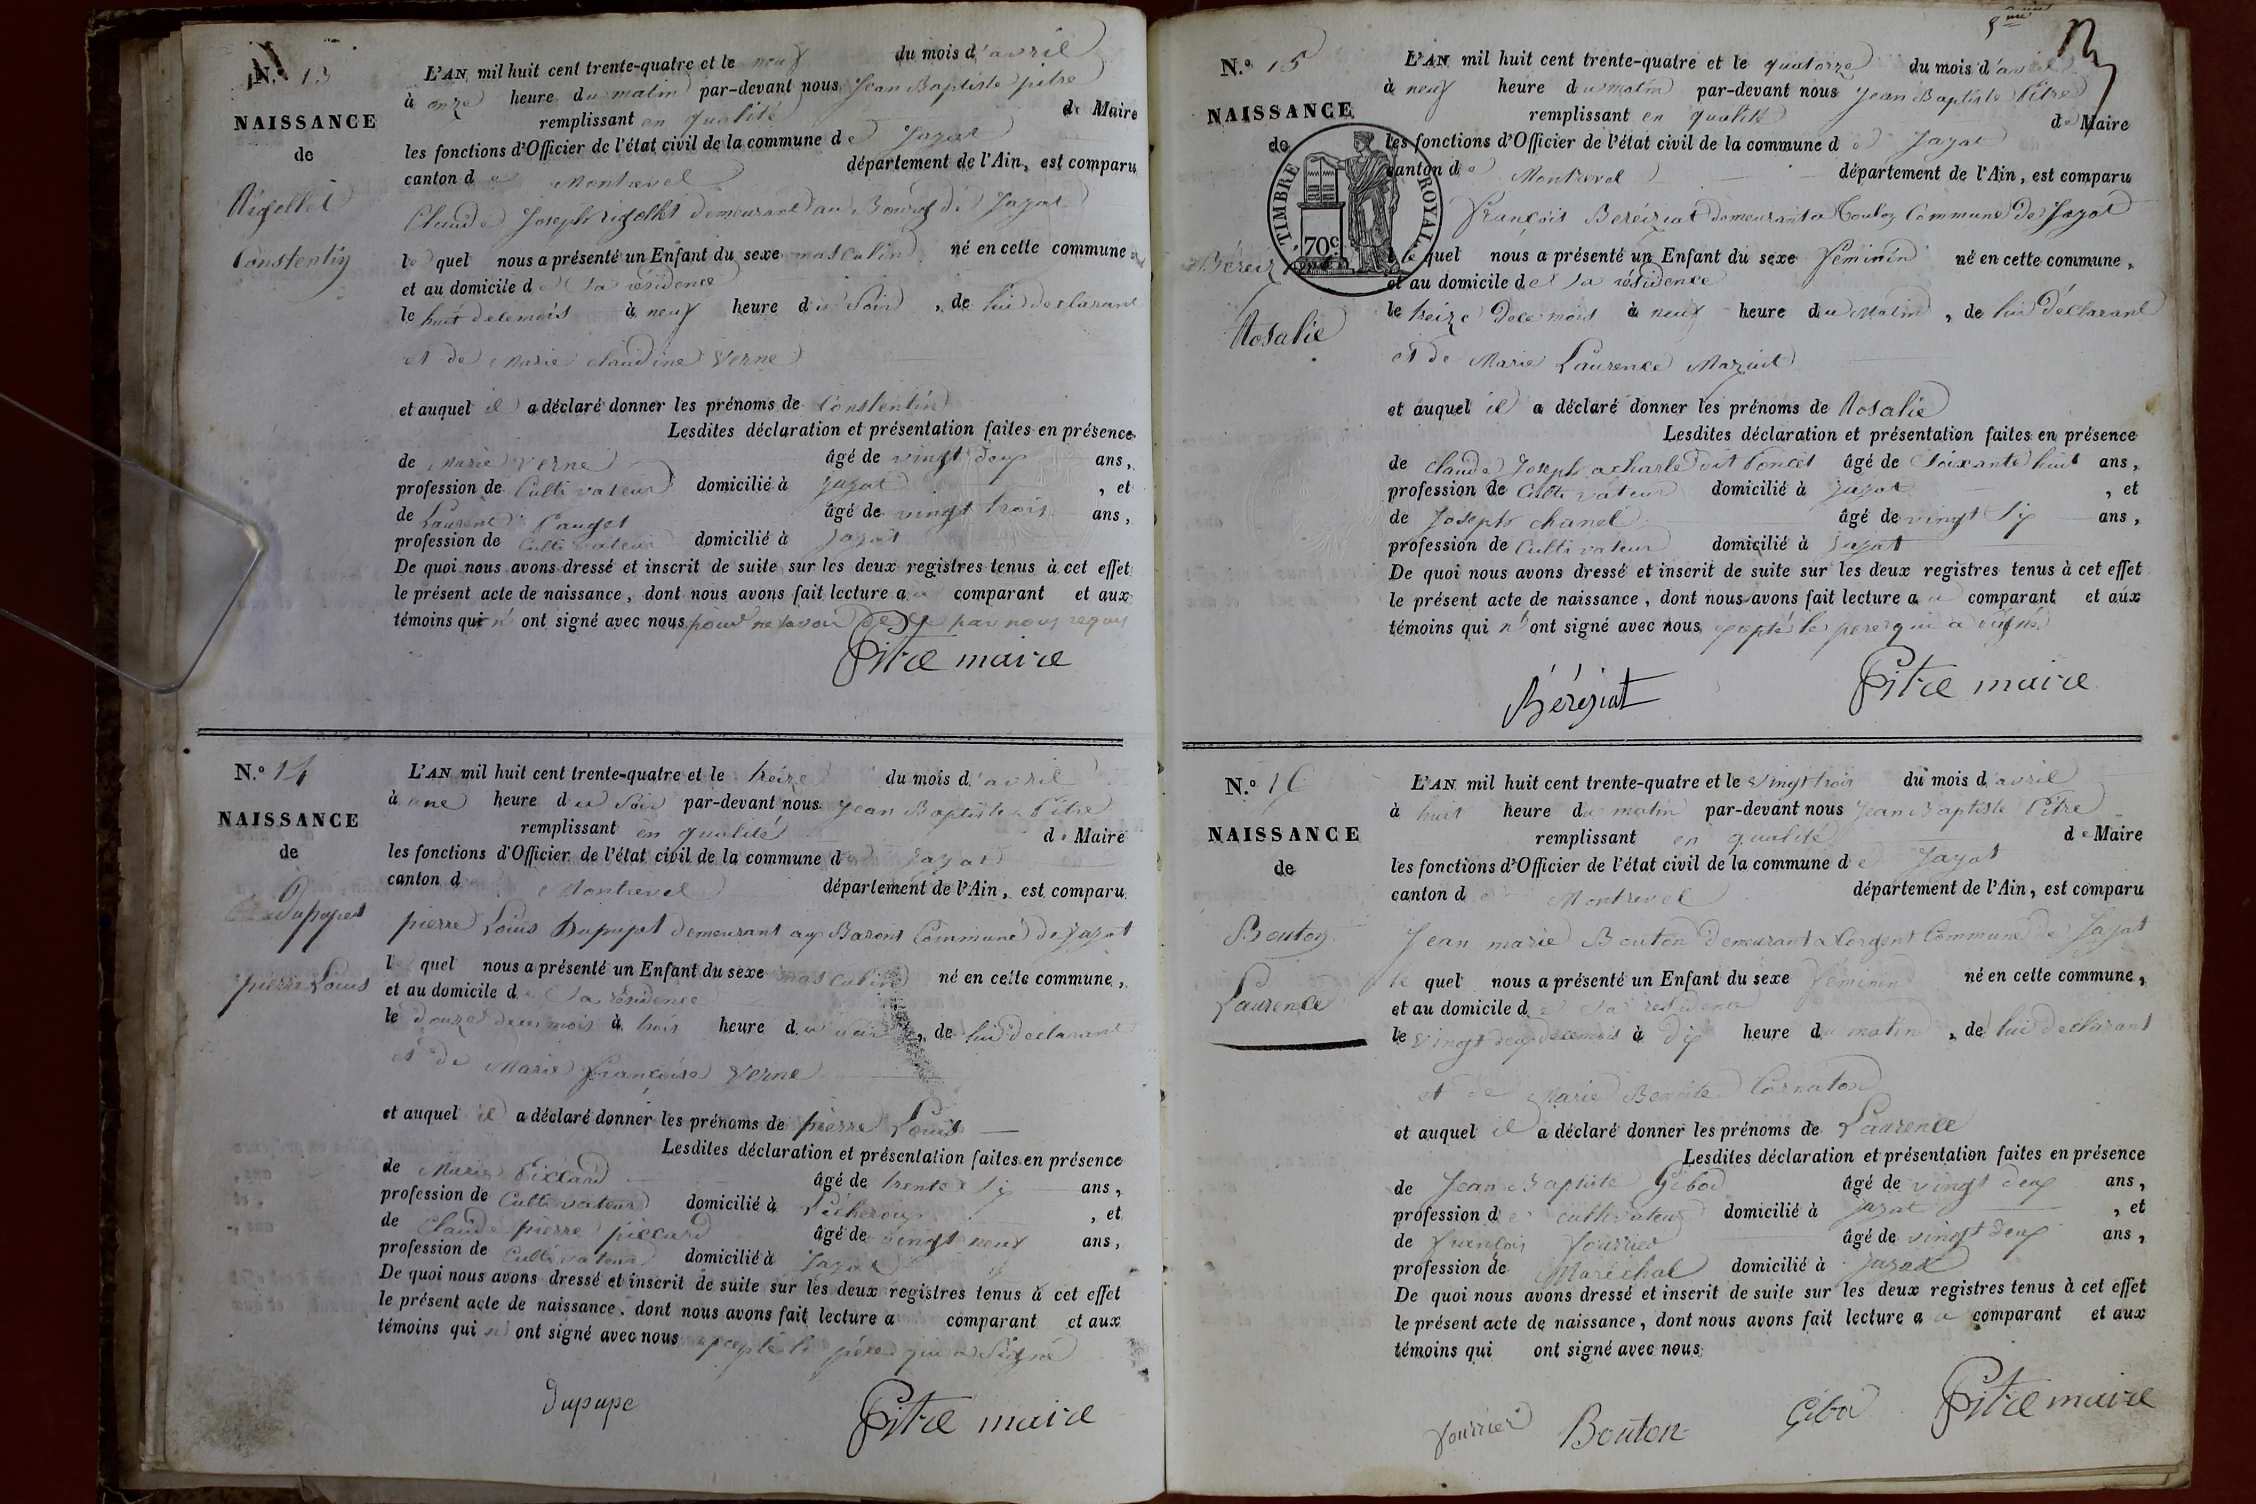 N.o 13
NAISSANCE
de
Rigollet
Constentin
L'AN mil huit cent trente-quatre et le neuf du mois d'avril
à onze heure du matin par-devant nous Jean Baptiste pitre
remplissant en qualité de Maire
les fonctions d'Officier de l'état civil de la commune de Jayat
canton de Montrevel département de l'Ain, est comparu
Claude Joseph rigollet demeurant au Bourg de Jayat
le quel nous a présenté un Enfant du sexe masculin né en cette commune
et au domicile de sa résidence
le huit de ce mois à neuf heure du Soir, de lui declarant
et de Marie claudine Verne
et auquel il a déclaré donner les prénoms de Constentin
Lesdites déclaration et présentation faites en présence
de Marie Verne âgé de vingt deux ans,
profession de Cultivateur domicilié à Jayat, et
de Laurent Pauget âgé de vingt trois ans,
profession de Cultivateur domicilié à Jayat
De quoi nous avons dressé et inscrit de suite sur les deux registres tenus à cet effet
le présent acte de naissance, dont nous avons fait lecture au comparant et aux
témoins qui n'ont signé avec nous pour ne savoir de ce par nous requis
Pitre maire
N.o 14
NAISSANCE
de
Dupupet
pierre Louis
L'AN mil huit cent trente-quatre et le treize du mois d'avril
à une heure du Soir par-devant nous Jean Baptiste Pitre
remplissant en qualité de Maire
les fonctions d'Officier de l'état civil de la commune de Jayat
canton d Montrevel département de l'Ain, est comparu
pierre Louis Dupupet demeurant aux Baront Commune de Jayat
l quel nous a présenté un Enfant du sexe masculin né en cette commune,
et au domicile de sa résidence
le douze de ce mois à trois heure du soir, de lui declarant
et de Marie françoise Verne
et auquel il a déclaré donner les prénoms de pierre Louis
Lesdites déclaration et présentation faites en présence
de Marie Piccard âgé de trente Six ans,
profession de Cultivateur domicilié à Lécheroux, et
de Claude pierre piccard âgé de vingt neuf ans,
profession de Cultivateur domicilié à Jayat
De quoi nous avons dressé et inscrit de suite sur les deux registres tenus à cet effet
le présent acte de naissance, dont nous avons fait lecture a comparant et aux
témoins qui n'ont signé avec nous excepté le père qui a Signé
Dupupe Pitre maire
N.o 15
NAISSANCE
de
Rosalie
TIMBRE ROYAL
70c
L'AN mil huit cent trente-quatre et le quatorze du mois d'avril
à neuf heure du matin par-devant nous Jean Baptiste Pitre
remplissant en qualité de Maire
les fonctions d'Officier de l'état civil de la commune de Jayat
canton de Montrevel département de l'Ain, est comparu
françois Beréiziat demeurant a Commune de Jayat
le quel nous a présenté un Enfant du sexe féminin né en cette commune,
et au domicile de sa résidence
le treize de ce mois à neuf heure du Matin, de lui Déclarant
et de Marie Laurence
et auquel il a déclaré donner les prénoms de Rosalie
Lesdites déclaration et présentation faites en présence
de claude Joseph acharle dit Poncet âgé de Soixante huit ans,
profession de Cultivateur domicilié à Jayat, et
de Joseph chanel âgé de vingt Six ans,
profession de Cultivateur domicilié à Jayat
De quoi nous avons dressé et inscrit de suite sur les deux registres tenus à cet effet
le présent acte de naissance, dont nous avons fait lecture au comparant et aux
témoins qui n'ont signé avec nous excepté le pere qui a signé
Béréziat Pitre maire
N.o 16
NAISSANCE
de
Bouton
Laurence
L'AN mil huit cent trente-quatre et le vingt trois du mois d'avril
à huit heure du matin par-devant nous Jean Baptiste Pitre
remplissant en qualité de Maire
les fonctions d'Officier de l'état civil de la commune de Jayat
canton de Montrevel département de l'Ain, est comparu
Jean marie Bouton demeurant a Commune de Jayat
le quel nous a présenté un Enfant du sexe féminin né en cette commune,
et au domicile de sa residence
le vingt deux de ce mois à dix heure du matin, de lui declarant
et de Marie Benoite Cornaton
et auquel il a déclaré donner les prénoms de Laurence
Lesdites déclaration et présentation faites en présence
de Jean Baptiste Gibod âgé de vingt deux ans,
profession de cultivateur domicilié à Jayat, et
de françois fourrier âgé de vingt deux ans,
profession de Maréchal domicilié à Jayat
De quoi nous avons dressé et inscrit de suite sur les deux registres tenus à cet effet
le présent acte de naissance, dont nous avons fait lecture au comparant et aux
témoins qui ont signé avec nous
fourrier Bouton Gibod Pitre maire